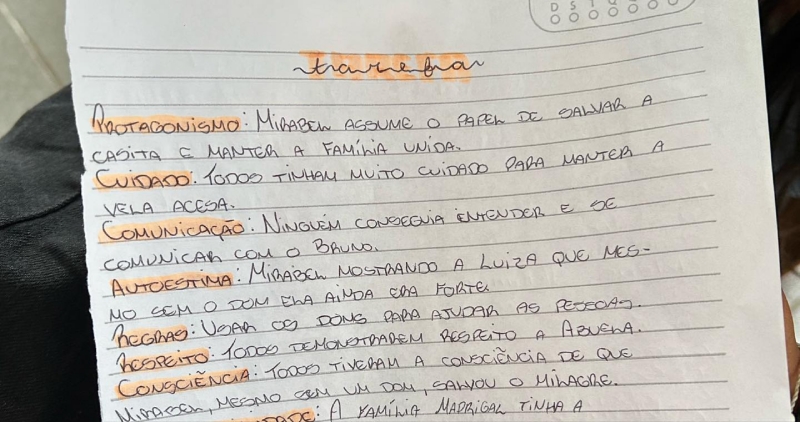 D S T
tarefa
PROTAGONISMO: MIRABEL ASSUME O PAPEL DE SALVAR A
CASITA E MANTER A FAMÍLIA UNIDA.
CUIDADO: TODOS TINHAM MUITO CUIDADO PARA MANTER A
VELA ACESA.
COMUNICAÇÃO: NINGUÉM CONSEGUIA ENTENDER E SE
COMUNICAR COM O BRUNO.
AUTOESTIMA: MIRABEL MOSTRANDO A LUIZA QUE MES-
MO SEM O DOM ELA AINDA ERA FORTE.
REGRAS: USAR OS DONS PARA AJUDAR AS PESSOAS.
RESPEITO: TODOS DEMONSTRAREM RESPEITO A ABUELA.
CONSCIÊNCIA: TODOS TIVERAM A CONSCIÊNCIA DE QUE
MIRABEL, MESMO SEM UM DOM, SALVOU O MILAGRE.
A FAMÍLIA MADRIGAL TINHA A